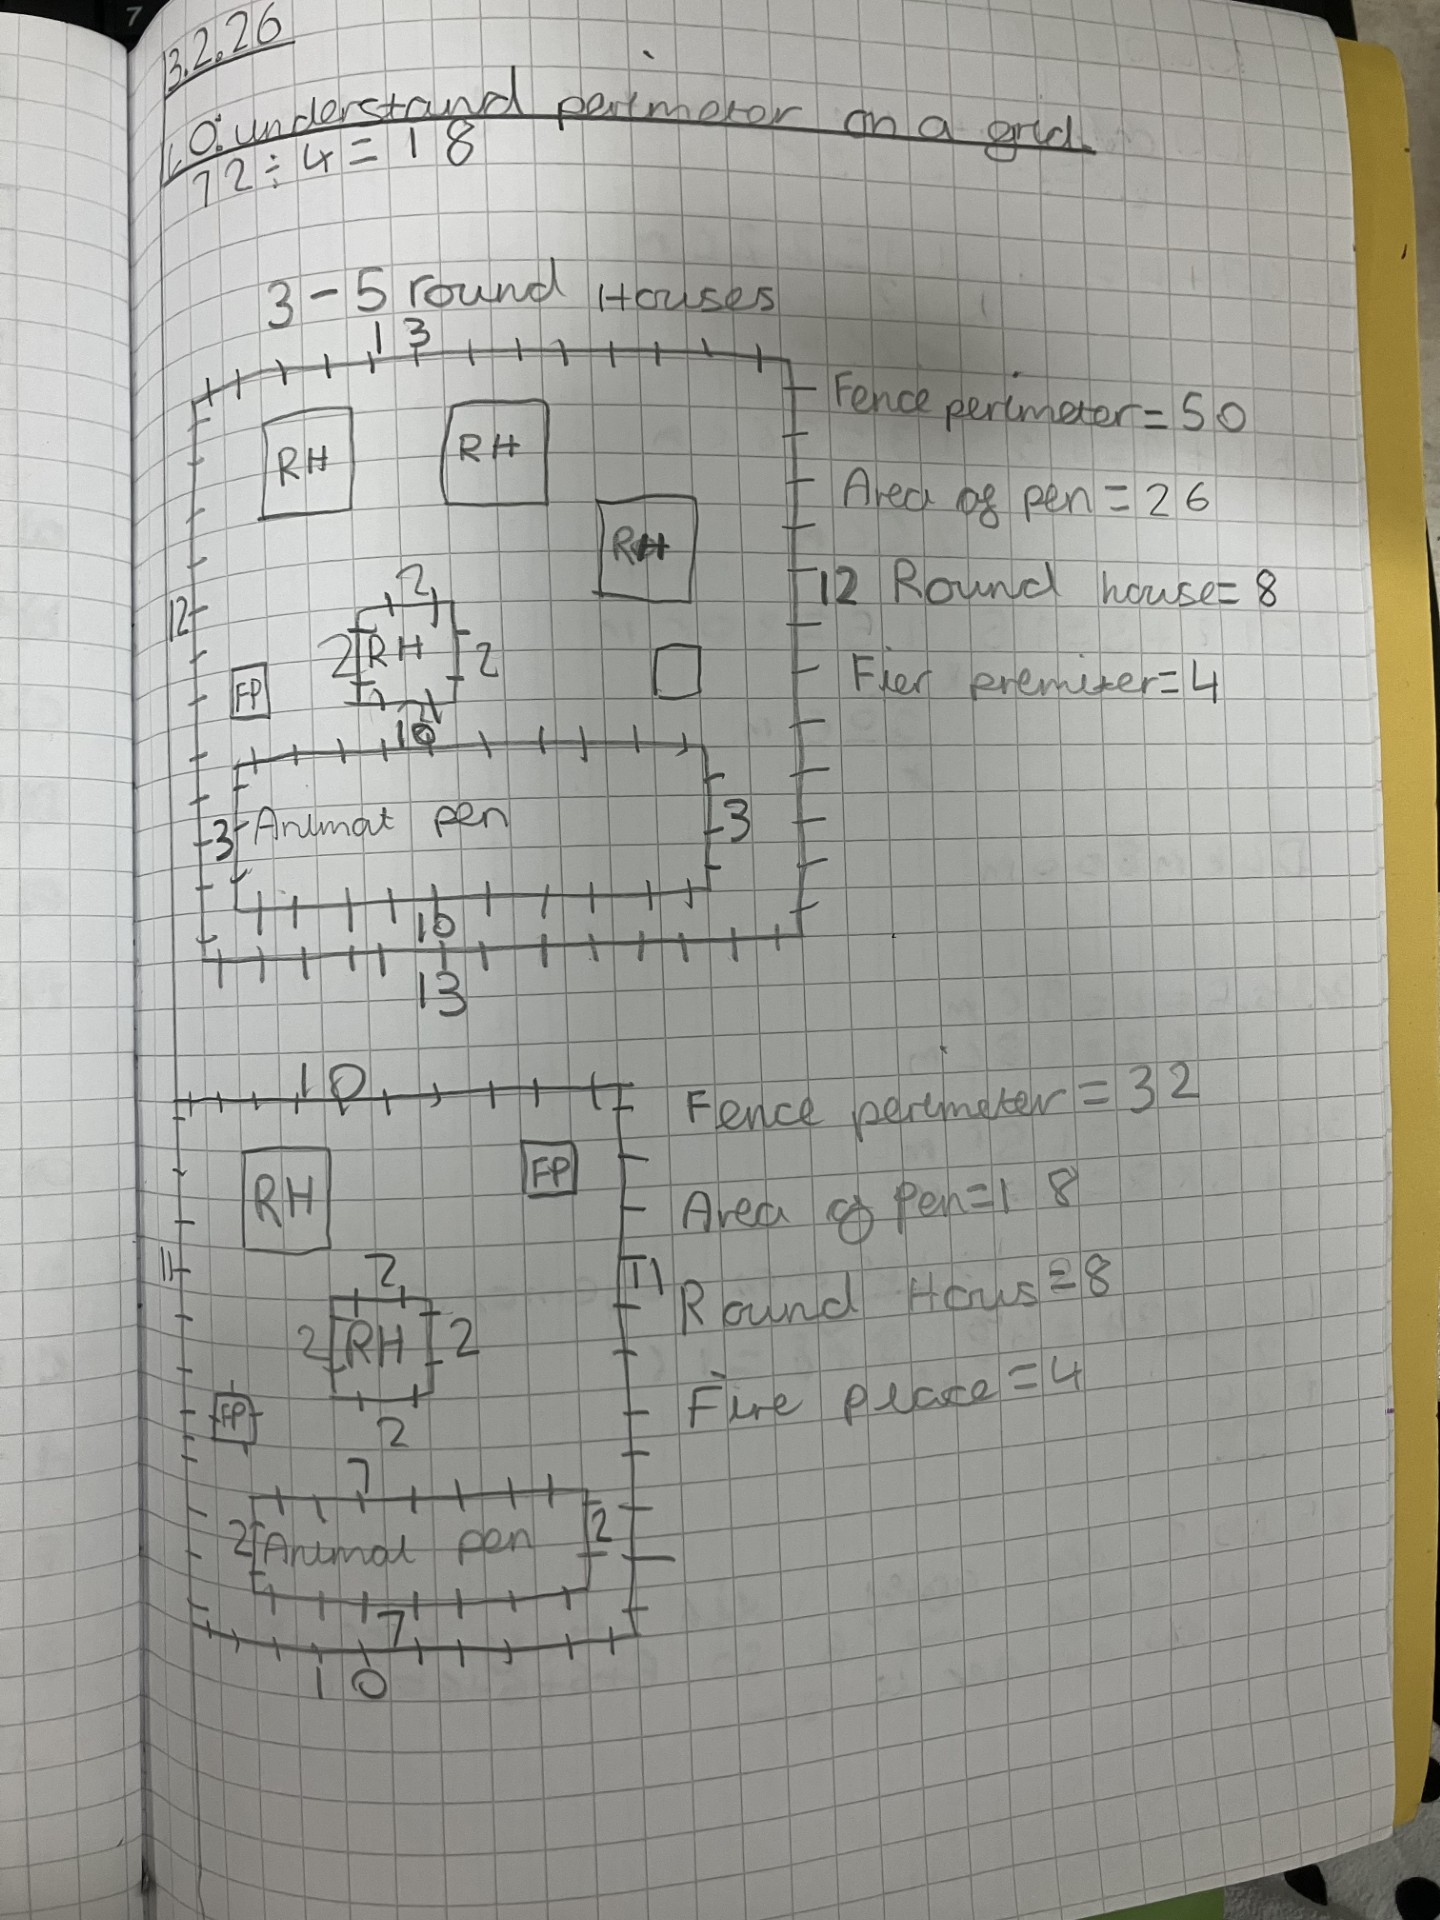 7
3.2.26
L.O: understand perimeter on a grid.
72 ÷ 4 = 18
3 - 5 round Houses
13
Fence perimeter = 50
RH
RH
Area of pen = 26
RH
12 Round house = 8
2
12
2 RH 2
Fier premiter = 4
FP
2
10
3 Animal pen 3
10
13
10
Fence perimeter = 32
RH
FP
Area of Pen = 18
11
11
Round Hous = 8
2
2 RH 2
Fire place = 4
FP
2
7
2 Animal pen 2
7
10